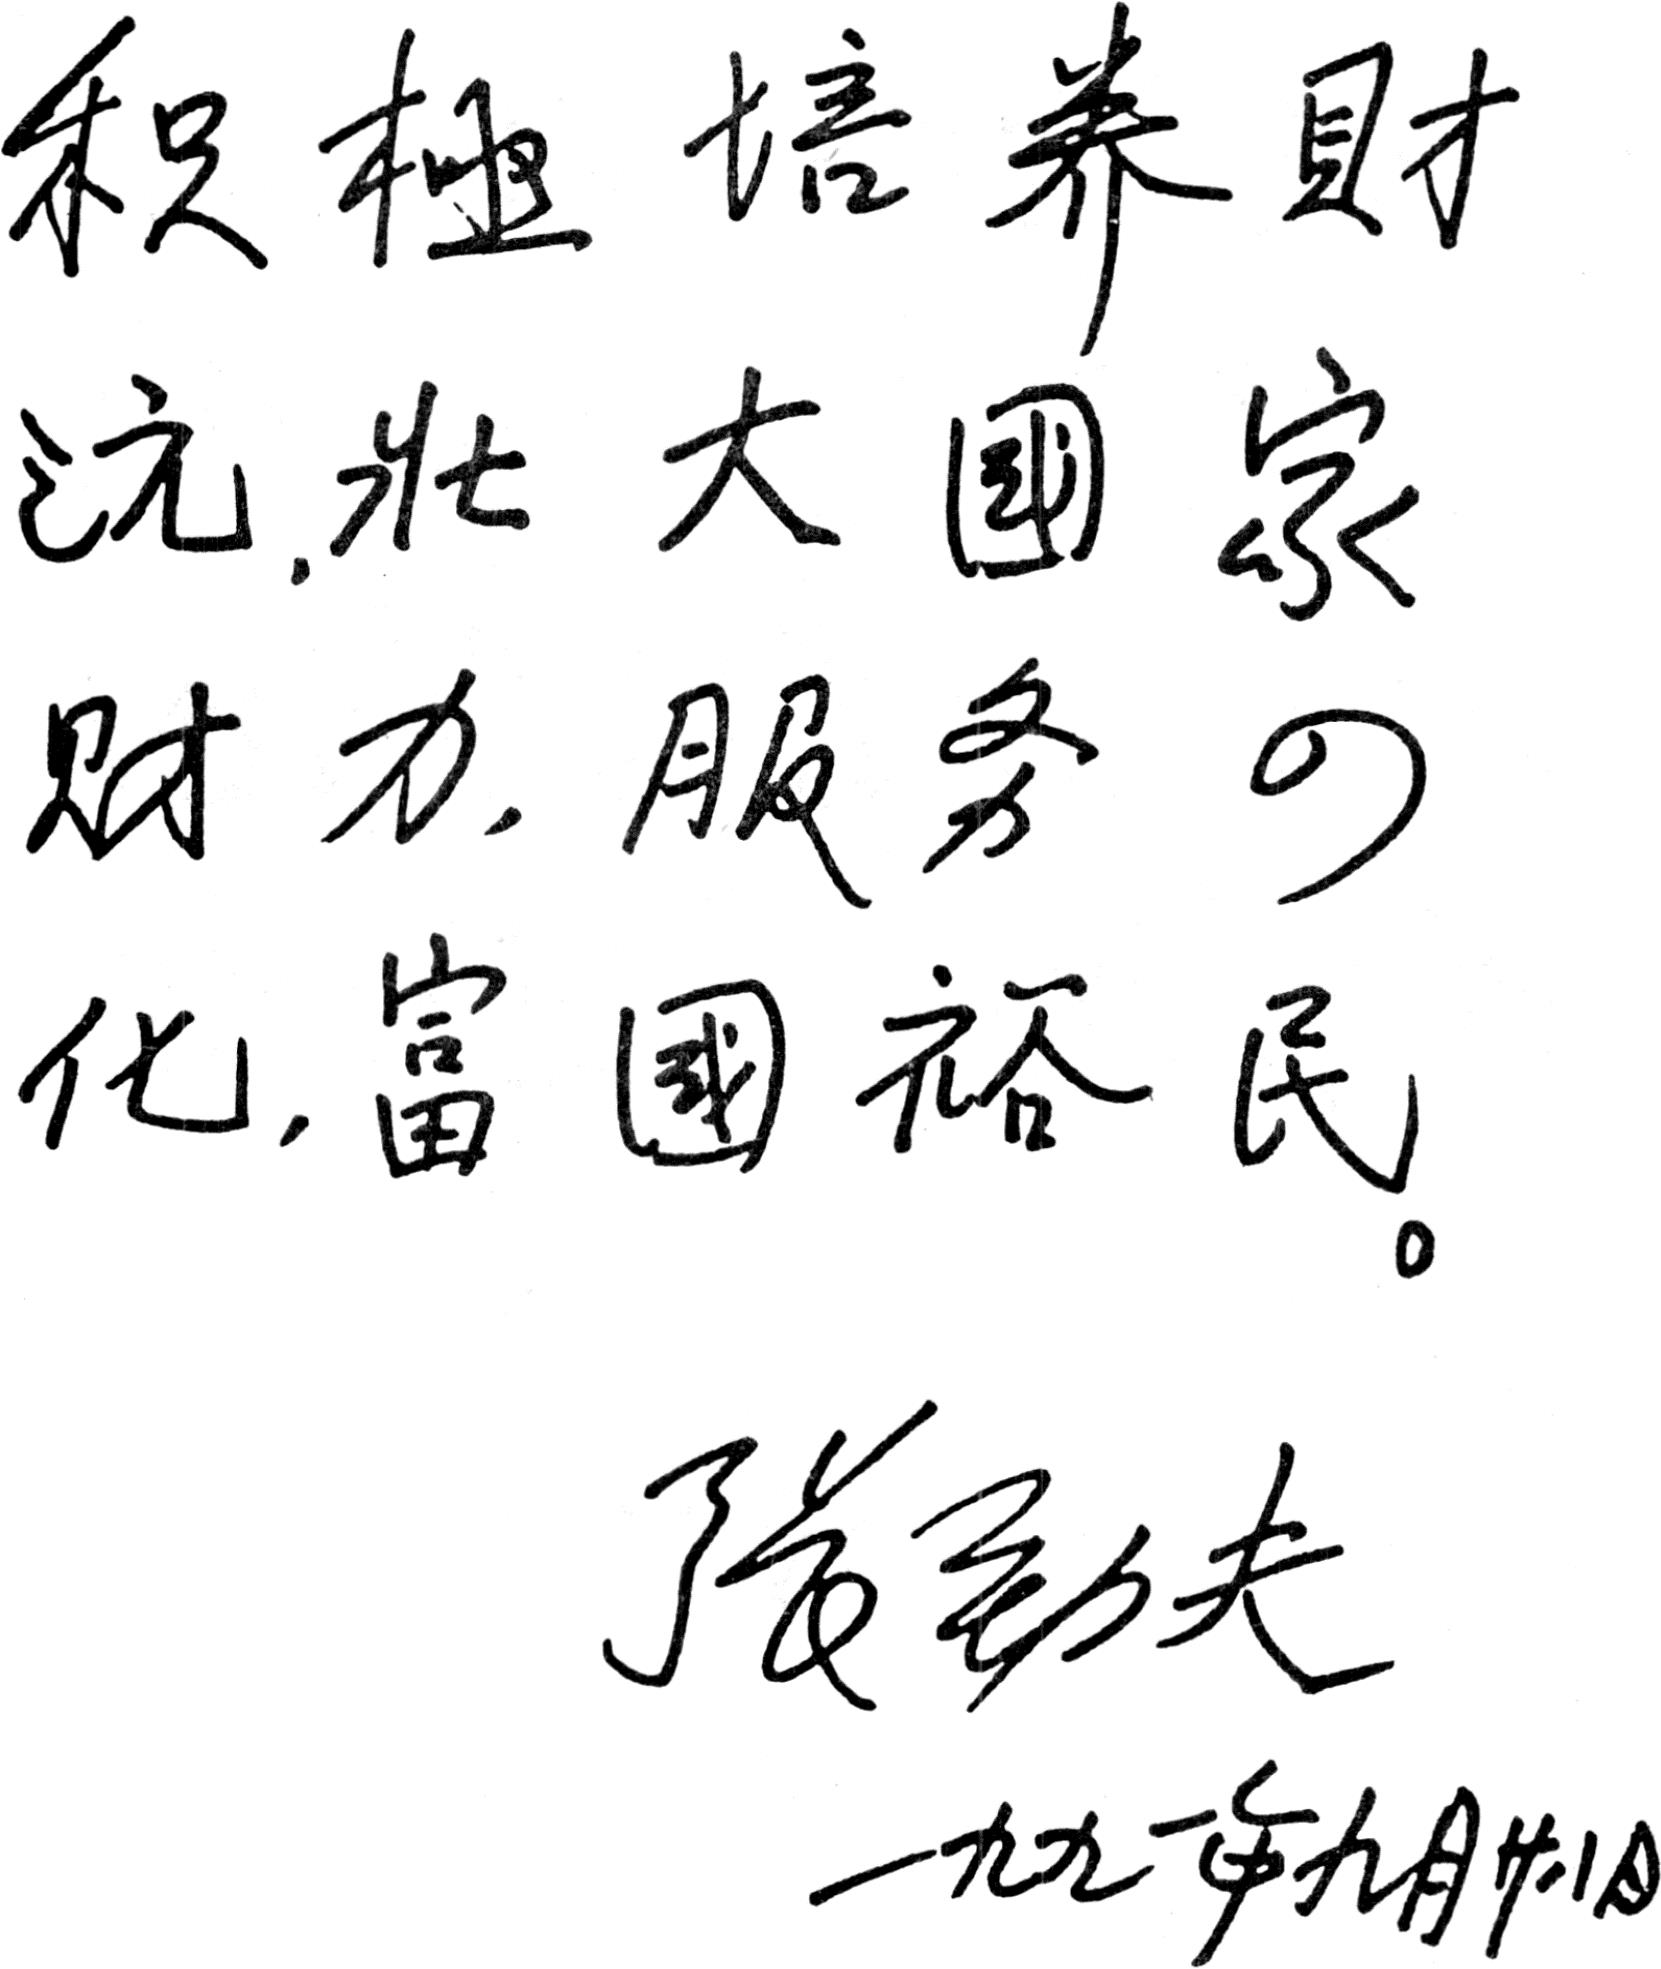 积極培养財
源，壯大國家
財力，服务四
化，富國裕民。
張勁夫
一九九一年九月廿八日